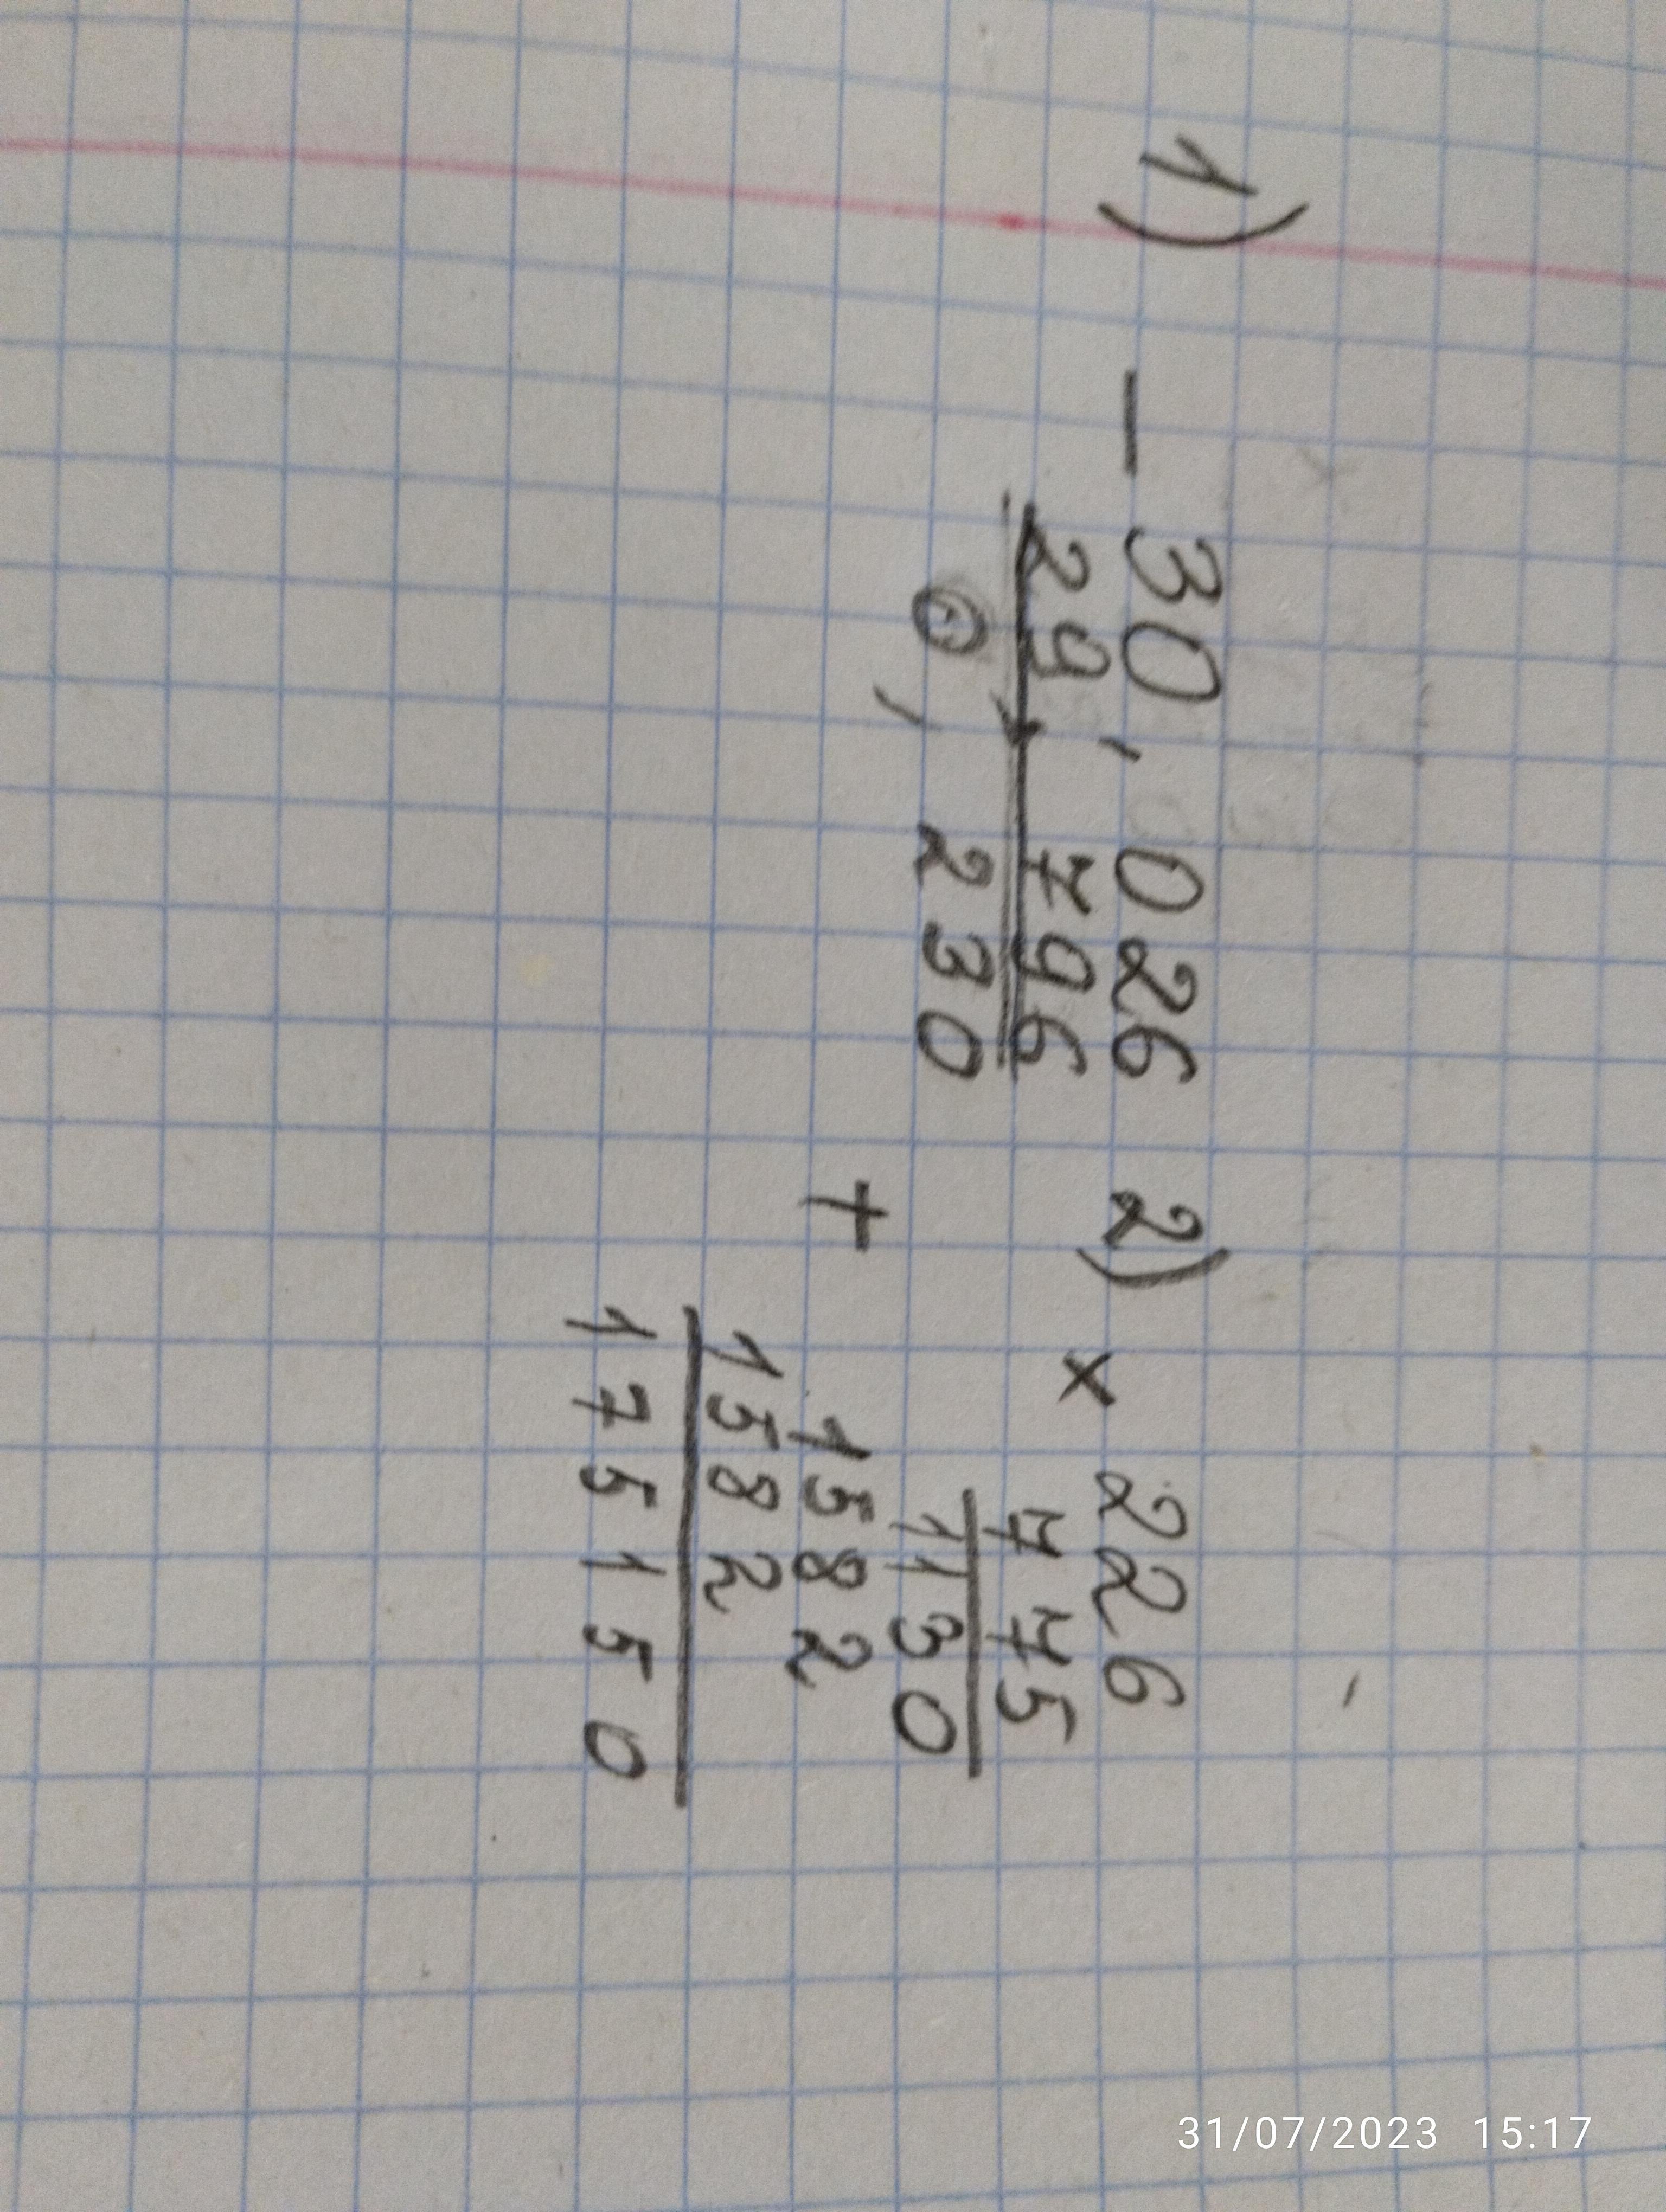 1) - 30,026
29,796
0,230
2) × 226
775
1130
+ 1582
1582
175150
31/07/2023 15:17